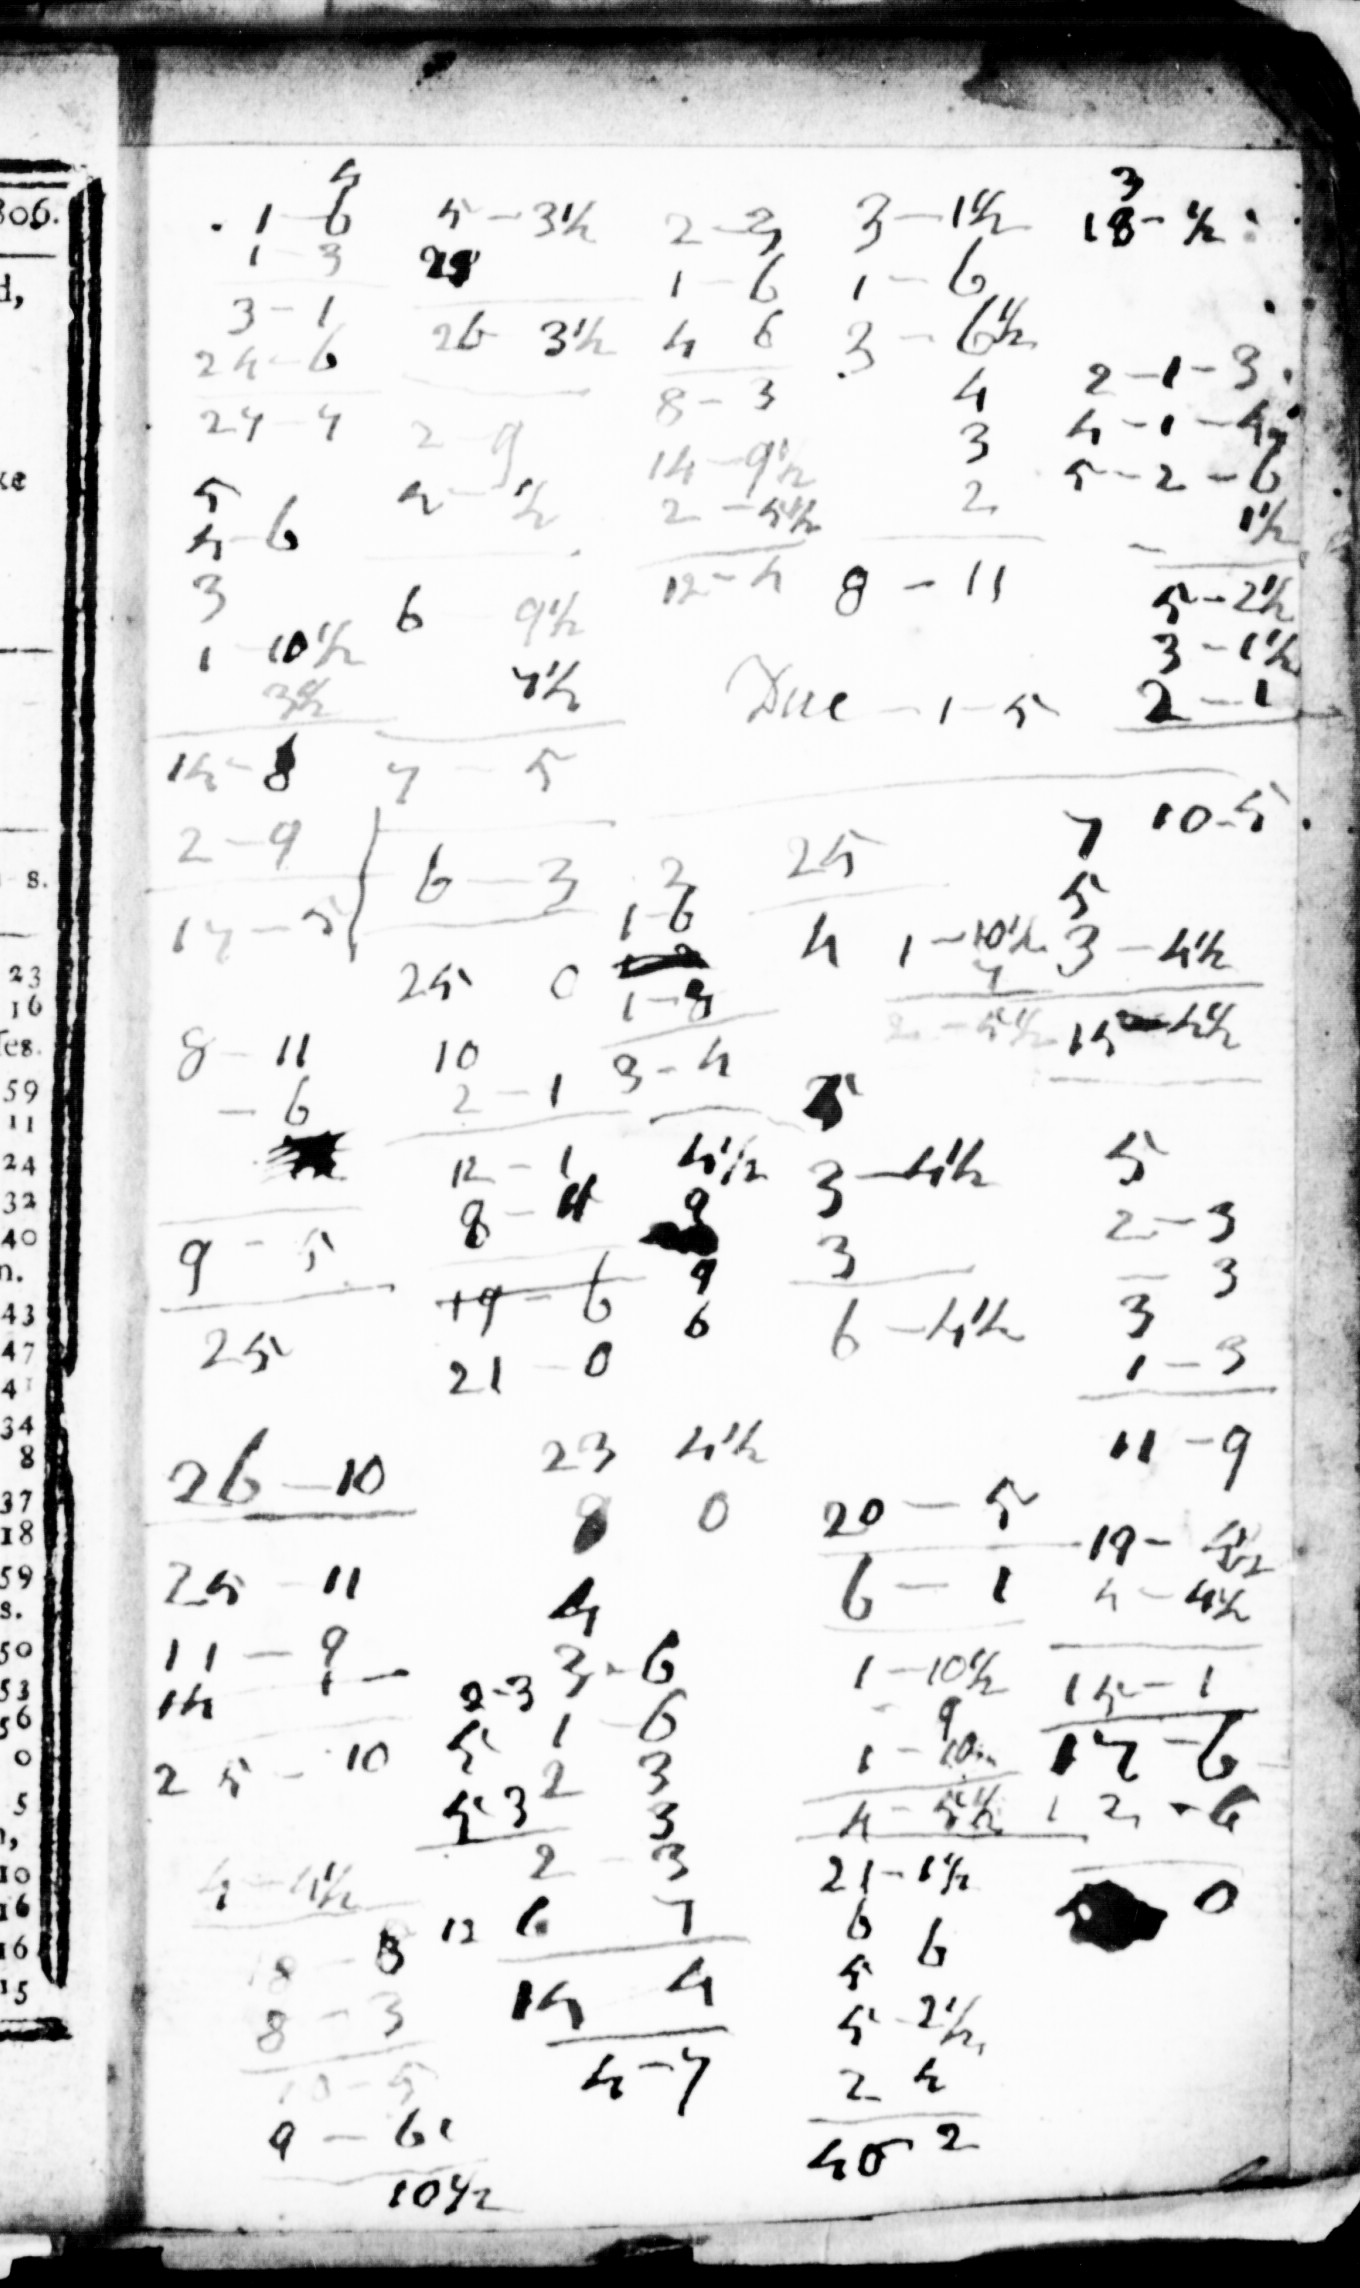 806.
d,
ke
8.
23
16
59
11
24
32
40
n.
43
47
41
34
8
37
18
59
s.
50
53
56
0
5
10
16
16
15
4
1-6
1-3
3-1
24-6
27-7
5
4-6
3
1-10½
3½
14-8
2-9
17-5
8-11
-6
9-5
25
26-10
25-11
11-9
14 1-
25-10
4-4½
18-8
8-3
10-5
9-6
10½
5-3½
26 3½
2-9
4-½
6 9½
7½
7-5
6-3
25 0
10
2-1
12-1
8-11
19-6
21-0
23 4½
0
4
3-6
2-3
1-6
5
2 3
5 3
3
2-3
12 6 7
14 4
4-7
2-3
1-6
4 6
8-3
14-9½
2-5½
12-4
2
1-6
1-8
3-4
4½
9
9
6
3-1½
1-6
3-6½
4
3
2
8-11
Due-1-5
25
4 1-10½
7
2-5½
5
3-4½
3
6-4½
20-5
6-1
1-10½
9
1-10
4-5½
21-1½
6 6
5
5-2½
2 4
40 2
3
18-½
2-1-3
4-1-4
5-2-6
1½
5-2½
3-1½
2-1
10-5
7
5
3-4½
15-4½
5
2-3
-3
3
1-3
11-9
19-
4-4½
15-1
17-6
12-6
0